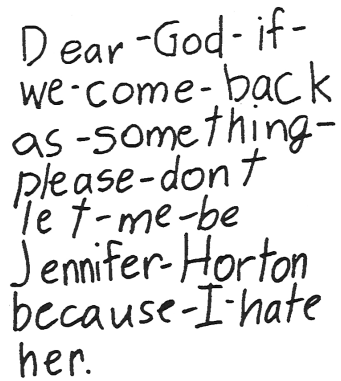 Dear-God-if-
we-come-back
as-something-
please-dont
let-me-be
Jennifer-Horton
because-I-hate
her.